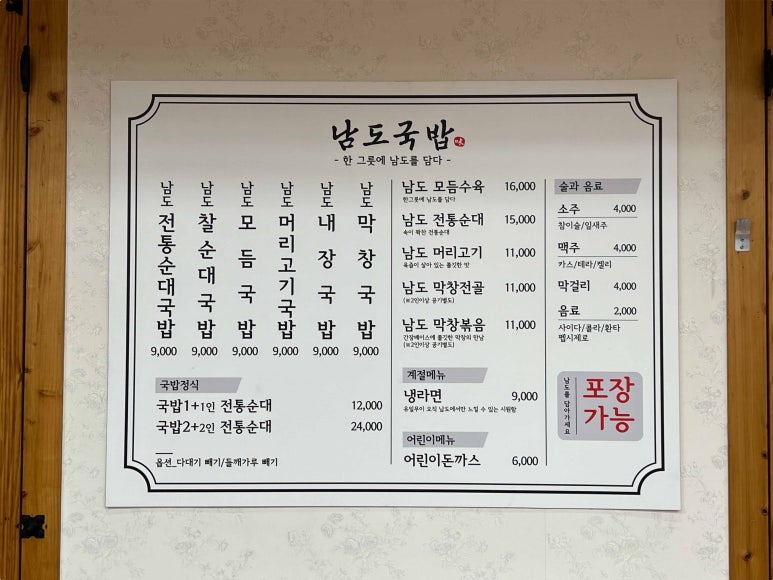 남도국밥
- 한 그릇에 남도를 담다 -
남도 전통순대국밥 9,000
남도 찰순대국밥 9,000
남도 모듬국밥 9,000
남도 머리고기국밥 9,000
남도 내장국밥 9,000
남도 막창국밥 9,000
국밥정식
국밥1+1인 전통순대 12,000
국밥2+2인 전통순대 24,000
옵션_다대기 빼기/들깨가루 빼기
남도 모듬수육 16,000
한그릇에 남도를 담다
남도 전통순대 15,000
속이 꽉찬 전통순대
남도 머리고기 11,000
육즙이 살아 있는 쫄깃한 맛
남도 막창전골 11,000
(※2인이상 공기별도)
남도 막창볶음 11,000
간장베이스에 쫄깃한 막창의 만남
(※2인이상 공기별도)
계절메뉴
냉라면 9,000
유일무이 오직 남도에서만 느낄 수 있는 시원함
어린이메뉴
어린이돈까스 6,000
술과 음료
소주 4,000
참이슬/잎새주
맥주 4,000
카스/테라/켈리
막걸리 4,000
음료 2,000
사이다/콜라/환타
펩시제로
남도를 담아가세요
포장
가능